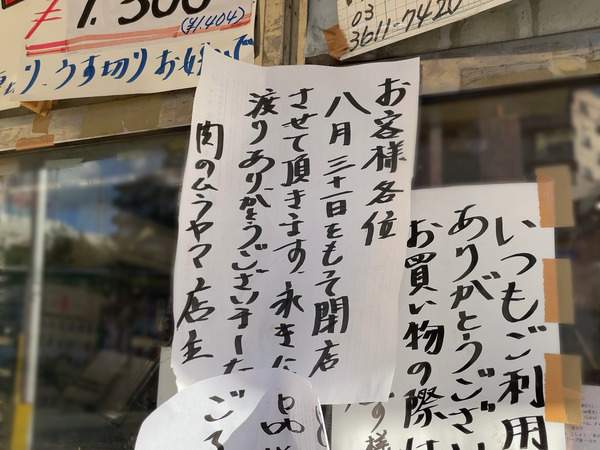 1.300
(¥1,404)
うす切りお好
03
3611-7420
お客様各位
八月三十一日をもって閉店
させて頂きます。永きに
渡りありがとうございました
肉のムラヤマ店主
いつもご利用
ありがとうござい
お買い物の際は